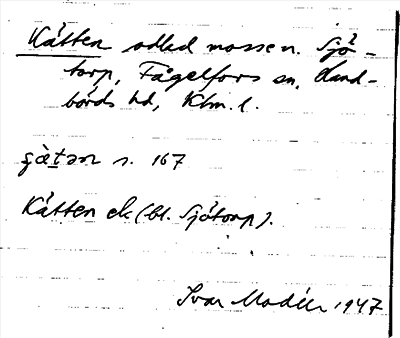 Kätten odled mossen. Sjö-
torp, Fågelfors sn, Hand-
börds hd, Klm. l.
s. 167
Kätten ek (bl. Sjötorp).
Ivar Modéer 1947